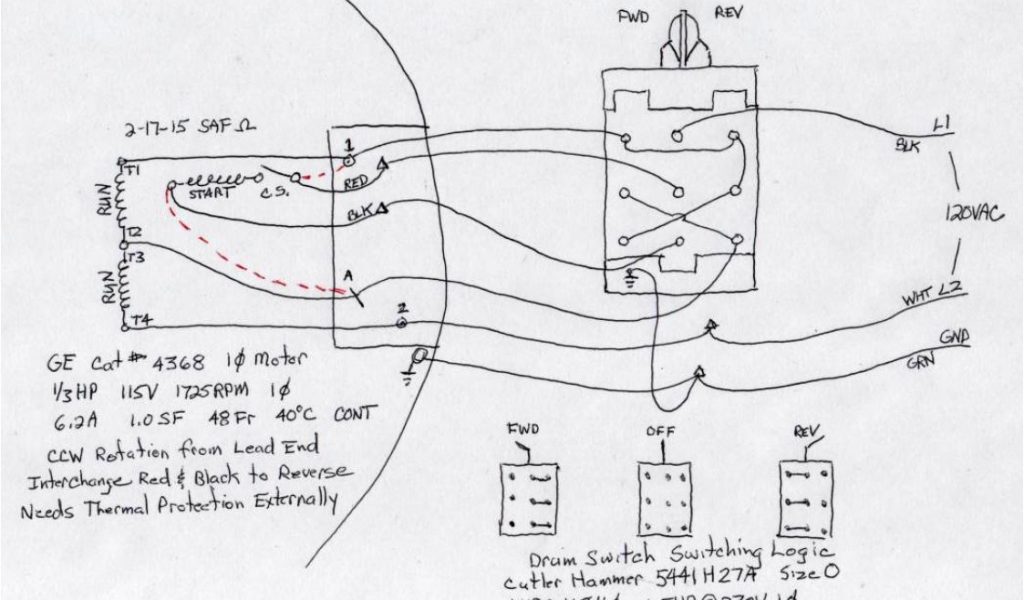 FWD REV
2-17-15 SAF Ω
L1
BLK
1
T1
RED
C.S.
START
RUN
BLK
120VAC
T2
T3
A
RUN
WHT L2
2
T4
GND
GRN
GE Cat # 4368 1ϕ Motor
1/3 HP 115V 1725RPM 1ϕ
6.2A 1.0 SF 48 Fr 40°C CONT
CCW Rotation from Lead End
Interchange Red & Black to Reverse
Needs Thermal Protection Externally
FWD OFF REV
Drum Switch Switching Logic
Cutler Hammer 5441H27A Size 0